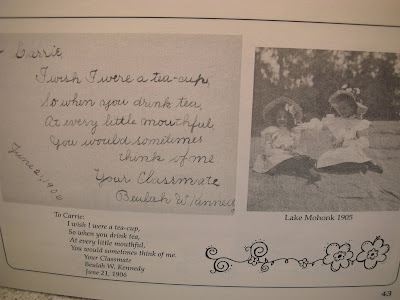 Carrie,
I wish I were a tea-cup,
So when you drink tea,
At every little mouthful,
You would sometimes
think of me
Your Classmate
Beulah W. Kennedy
June 21, 1906
Lake Mohonk 1905
To Carrie:
I wish I were a tea-cup,
So when you drink tea,
At every little mouthful,
You would sometimes think of me.
Your Classmate
Beulah W. Kennedy
June 21, 1906
43